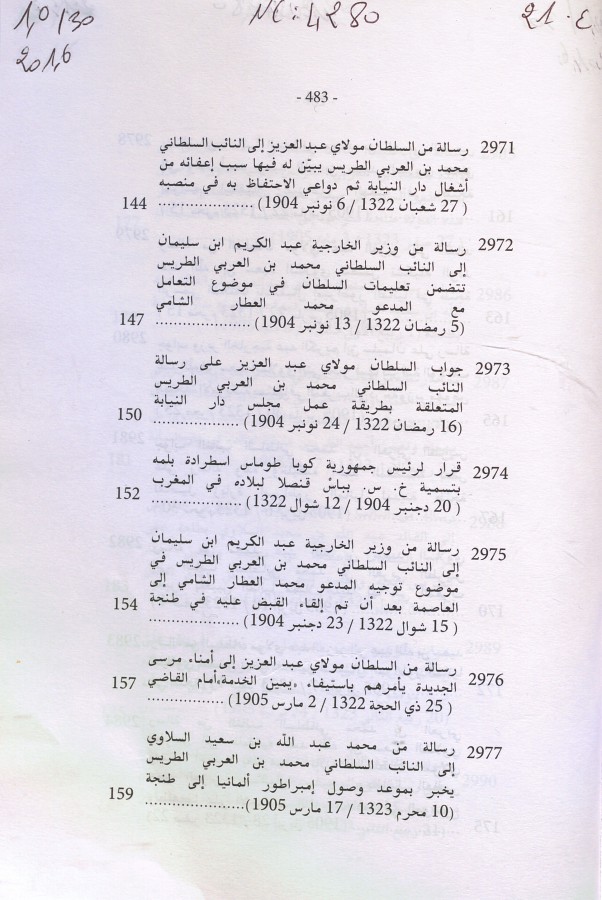 1,0/30
NC: 4280
21.
201,6
- 483 -
2971 رسالة من السلطان مولاي عبد العزيز إلى النائب السلطاني
محمد بن العربي الطريس يبيّن له فيها سبب إعفائه من
أشغال دار النيابة ثم دواعي الاحتفاظ به في منصبه
( 27 شعبان 1322 / 6 نونبر 1904) .......... 144
2972 رسالة من وزير الخارجية عبد الكريم ابن سليمان
إلى النائب السلطاني محمد بن العربي الطريس
تتضمن تعليمات السلطان في موضوع التعامل
مع المدعو محمد العطار الشامي
(5 رمضان 1322 / 13 نونبر 1904) .................... 147
2973 جواب السلطان مولاي عبد العزيز على رسالة
النائب السلطاني محمد بن العربي الطريس
المتعلقة بطريقة عمل مجلس دار النيابة
(16 رمضان 1322 / 24 نونبر 1904) .................. 150
2974 قرار لرئيس جمهورية كوبا طوماس اسطرادة بلمه
بتسمية خ. س. بباسْ قنصلا لبلاده في المغرب
( 20 دجنبر 1904 / 12 شوال 1322) ................. 152
2975 رسالة من وزير الخارجية عبد الكريم ابن سليمان
إلى النائب السلطاني محمد بن العربي الطريس في
موضوع توجيه المدعو محمد العطار الشامي إلى
العاصمة بعد أن تم إلقاء القبض عليه في طنجة
( 15 شوال 1322 / 23 دجنبر 1904) ................... 154
2976 رسالة من السلطان مولاي عبد العزيز إلى أمناء مرسى
الجديدة يأمرهم باستيفاء «يمين الخدمة» أمام القاضي
( 25 ذي الحجة 1322 / 2 مارس 1905) ............... 157
2977 رسالة من محمد عبد اللّه بن سعيد السلاوي
إلى النائب السلطاني محمد بن العربي الطريس
يخبر بموعد وصول إمبراطور ألمانيا إلى طنجة
(10 محرم 1323 / 17 مارس 1905) ..................... 159